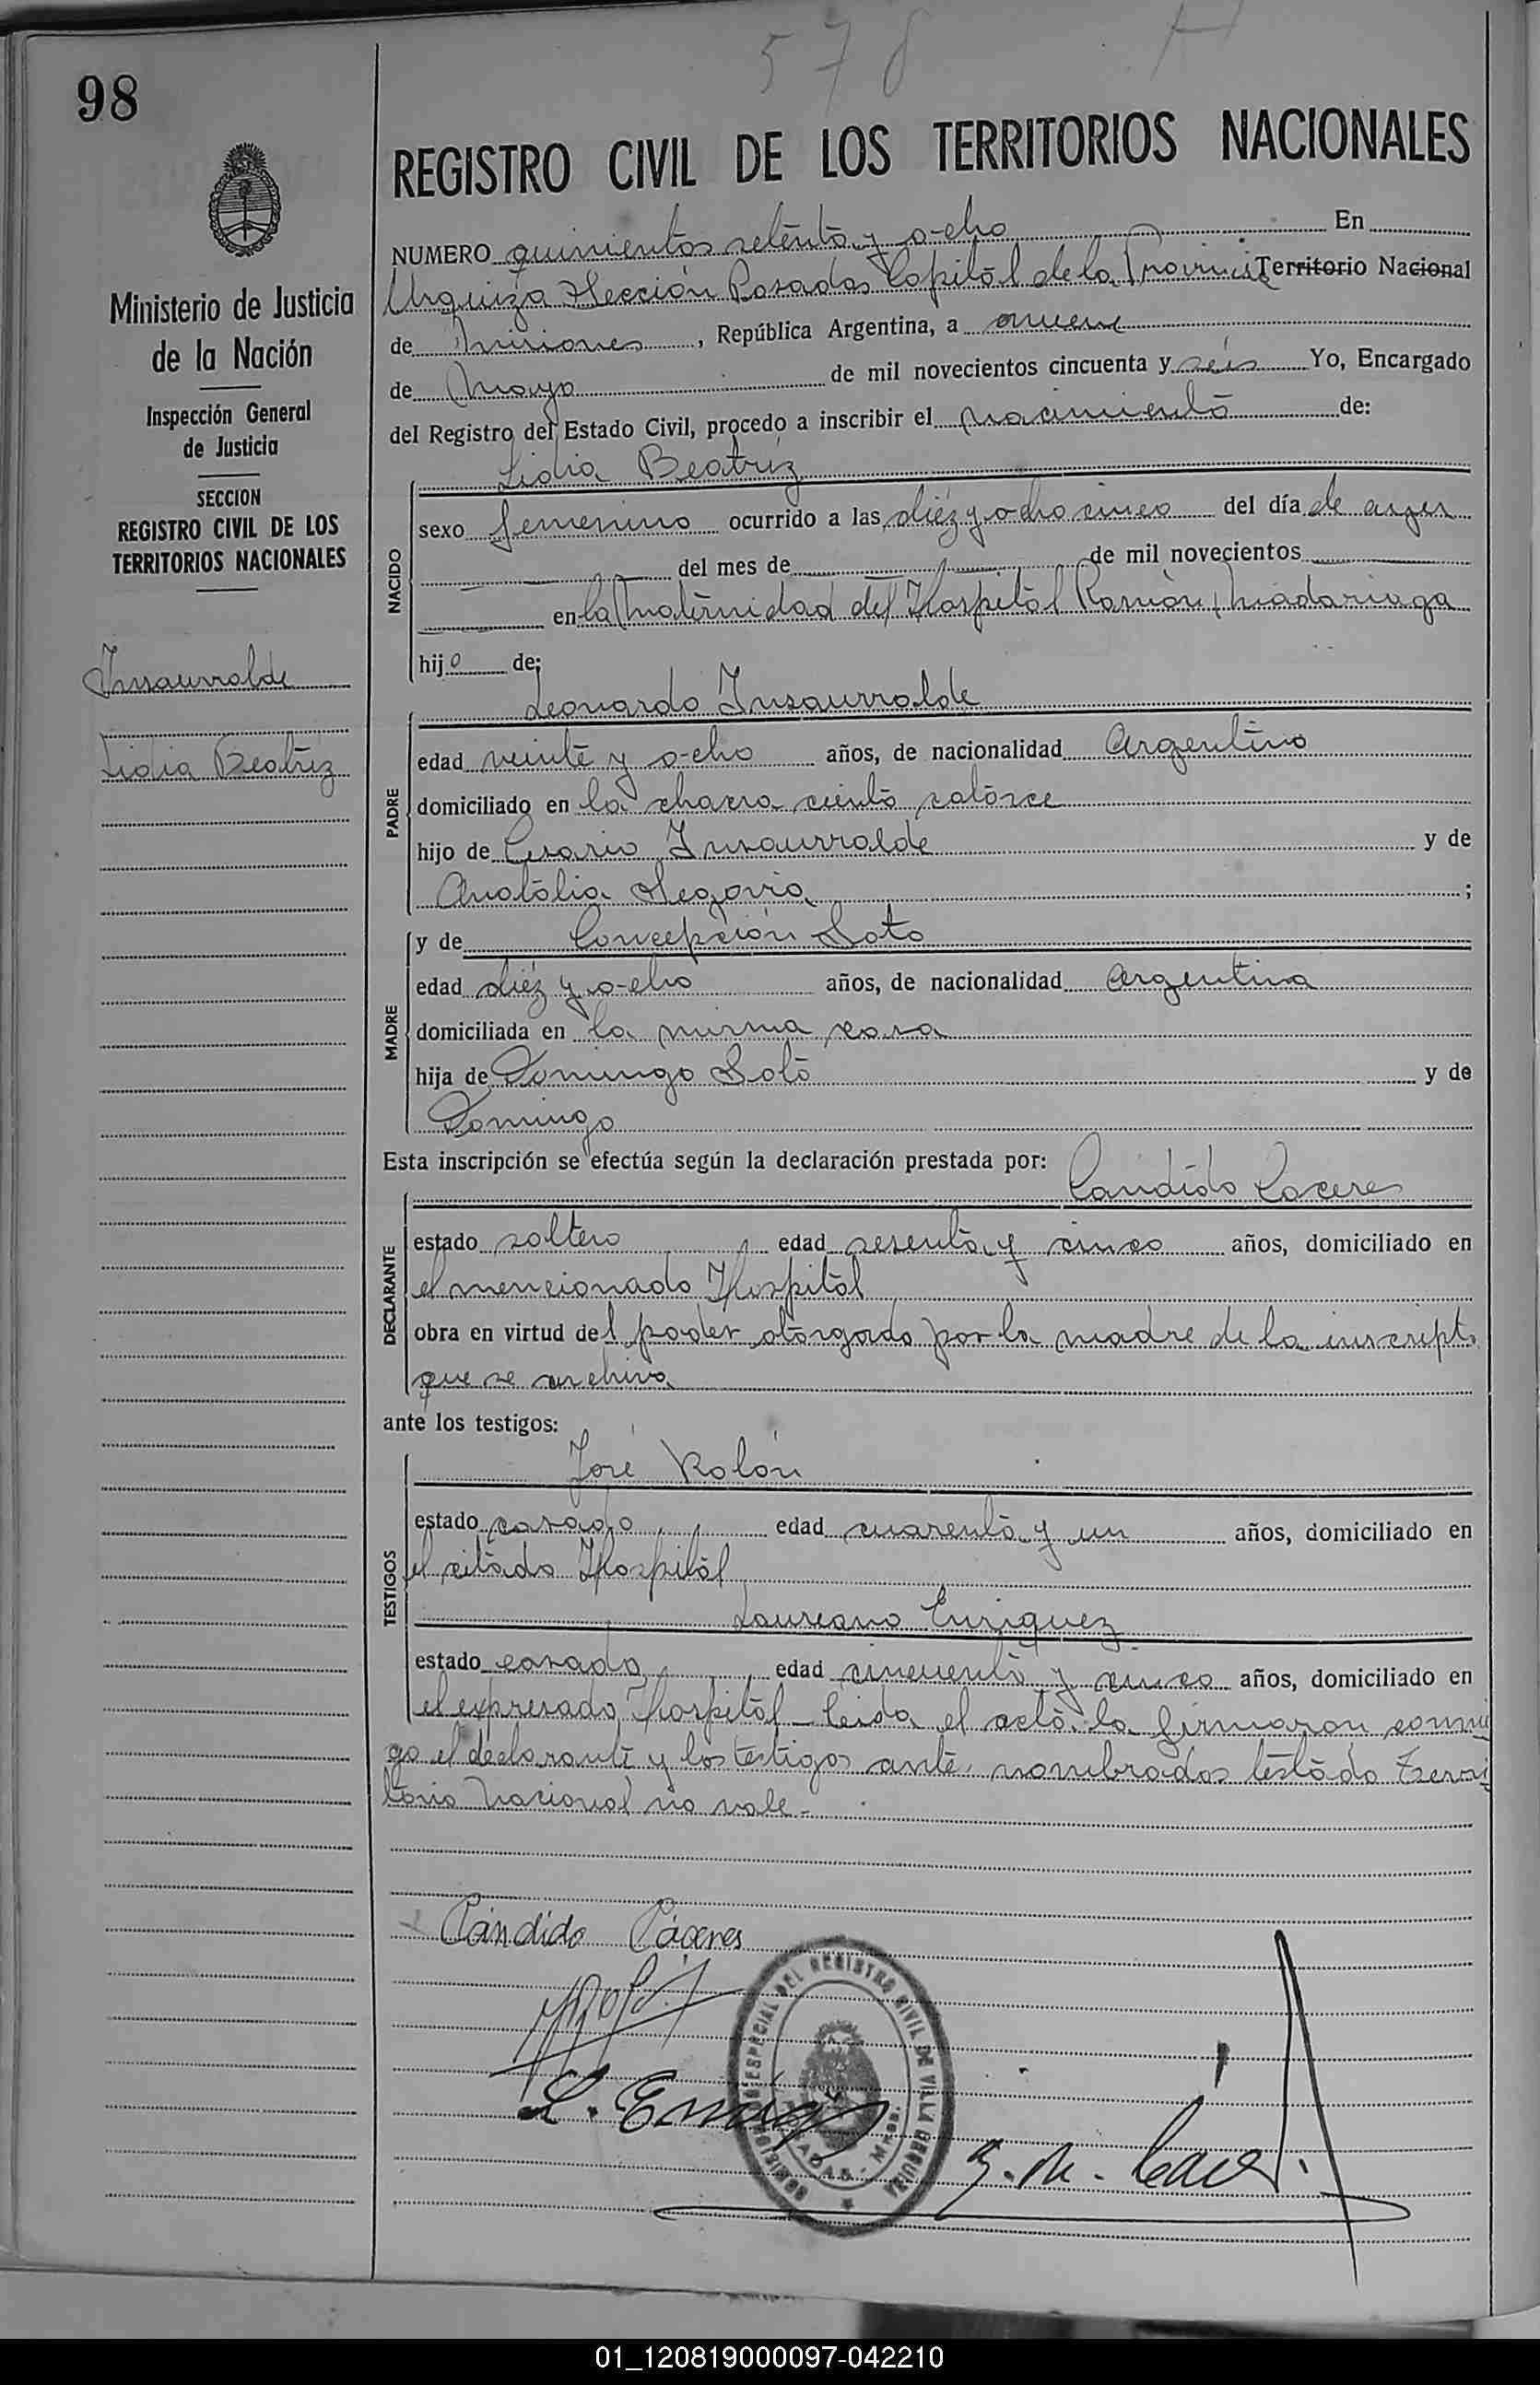 578
98
REGISTRO CIVIL DE LOS TERRITORIOS NACIONALES
NUMERO quinientos setenta y ocho En
Urquiza Sección Posadas Capital de la Provincia Territorio Nacional
de Misiones, República Argentina, a nueve
de Mayo de mil novecientos cincuenta y seis Yo, Encargado
del Registro del Estado Civil, procedo a inscribir el nacimiento de:
Lidia Beatriz
NACIDO
sexo femenino ocurrido a las diéz y ocho cinco del día de ayer
del mes de de mil novecientos
en la Maternidad del Hospital Ramón Madariaga
hijo de:
Leonardo Insaurralde
PADRE
edad veinte y ocho años, de nacionalidad Argentino
domiciliado en la chacra ciento catorce
hijo de Cesario Insaurralde y de
Anatolia Segovia ;
y de Concepción Soto
MADRE
edad diéz y ocho años, de nacionalidad Argentina
domiciliada en la misma casa
hija de Domingo Soto y de
Domingo
Esta inscripción se efectúa según la declaración prestada por:
Candido Caceres
DECLARANTE
estado soltero edad sesenta y cinco años, domiciliado en
el mencionado Hospital
obra en virtud del poder otorgado por la madre de la inscripta
que se archiva
ante los testigos:
José Rolón
TESTIGOS
estado casado edad cuarenta y un años, domiciliado en
el citado Hospital
Laureano Enriquez
estado casado edad cincuenta y cinco años, domiciliado en
el expresado Hospital - leida el acta la firmaron conmi
go el declarante y los testigos ante nombrados testado Terri
torio Nacional no vale-
Cándido Cáceres
COMISION ESPECIAL DEL REGISTRO CIVIL DE VILLA URQUIZA
POSADAS - Mnes.
Ministerio de Justicia
de la Nación
Inspección General
de Justicia
SECCION
REGISTRO CIVIL DE LOS
TERRITORIOS NACIONALES
Insaurralde
Lidia Beatriz
01_120819000097-042210